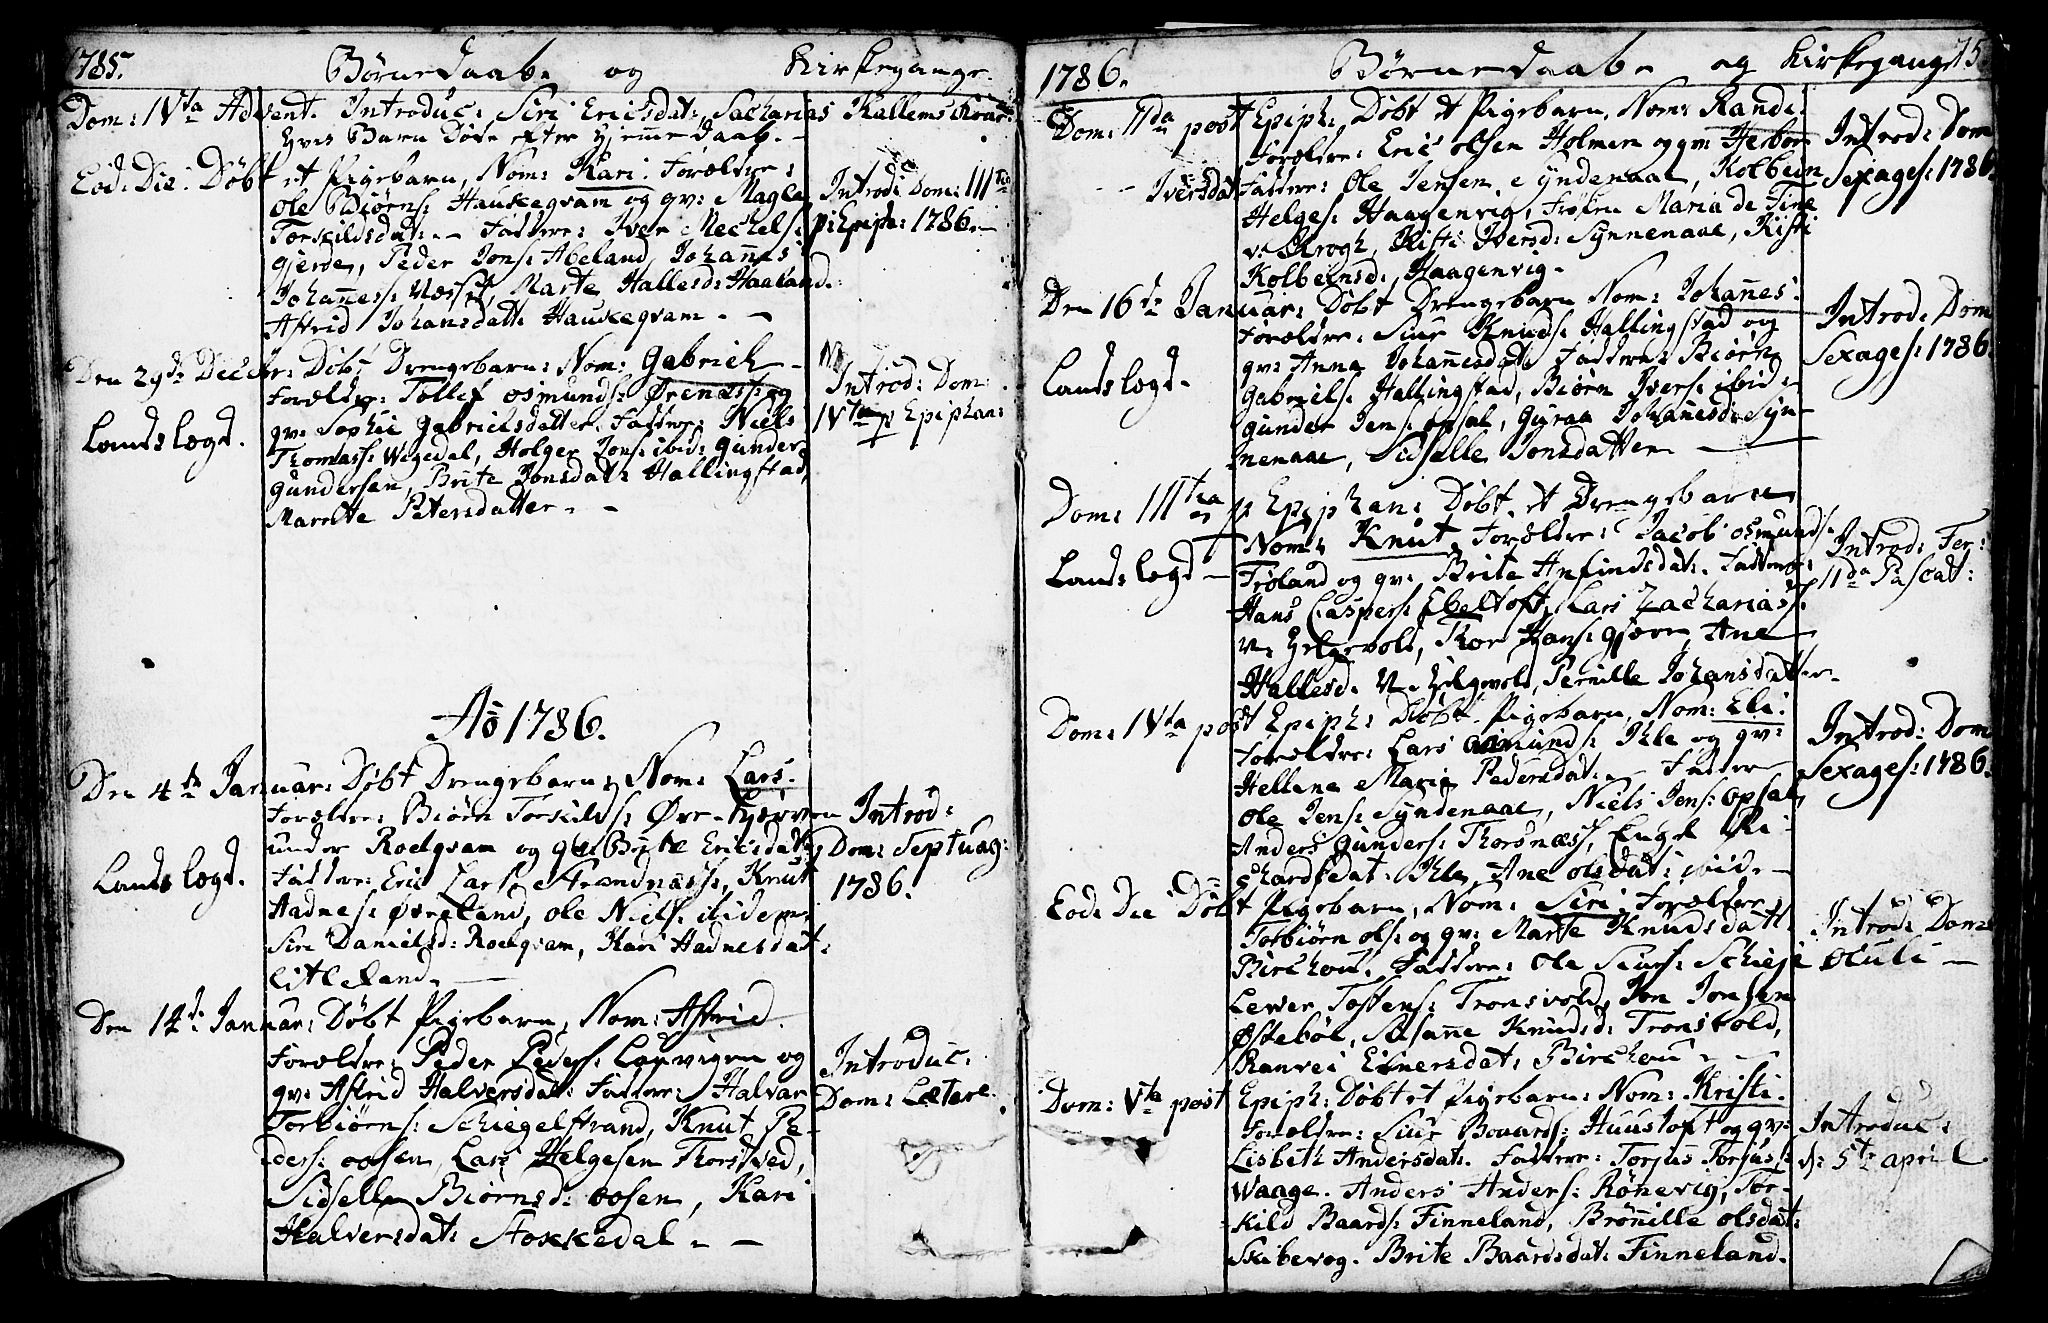 1785. Børnedaab og Kirkegange.
Dom: IVta Advent. Introduc: Siri Ericsdat: Sacharias Kallems
hvis Barn Døde efter Hjemme Daab.
Eod: Die: Døbt et Pigebarn, Nom: Kari. Forældre:
Ole Biørns: Hauskegvam og qv: Magle
Torkildsdat: - Faddere: Iver Mechels:
Gjerde, Peder Jons: Abeland, Johannes
Johanness: Næsse, Marte Hallesd: Haaland.
Astrid Johansdatt: Hauskegvam. -
Introd: Dom: IIItia
p: Epiph: 1786.
Den 29de Decbr: Døbt Drengebarn: Nom: Gabriel.
Landslægd.
Forældre: Tollef Osmunds: Ørenæss: og
qv: Sophie Gabrielsdatter. Faddere: Niels
Thomass: Wegedal, Holger Jons: ibid: Gunder
Gundersen, Brite Jonsdat: Hallingstad,
Marete Petersdatter. -
Introd: Dom:
IVta p Epiphan:
Ao 1786.
Den 4de Januar: Døbt Drengebarn, Nom: Lars.
Landslægd.
Forældre: Biørn Torkilds: Øvre-
under Roelgvam og qv: Brite Ericsdat:
Faddere: Eric Lars: Strandnæss:, Knut
Aadnes: Øvreland, Ole Niels: ibidem.
Siri Daniels: Roelgvam, Kari Aadnesdat:
Litleland.
Introd:
Dom: Septuag:
1786.
Den 14de Januar: Døbt Pigebarn, Nom: Astrid.
Forældre: Peder Peders: Lauvigen og
qv: Astrid Halversdat: Faddere: Halvar
Torbiørns: Schiegelstrand, Knut Pe-
ders: Oosen, Lars Helgesen Thorstved,
Sidselle Biørnsd: Oosen, Kari
Halversdat: Stokkedal. -
Introduc:
Dom: Lætare.
1786. Børnedaab og Kirkegange 75
Dom: IIda post Epiph: Døbt et Pigebarn, Nom: Rande.
Forældre: Eric Olsen Holmen og qv: Herbor
Iversdat Faddere: Ole Jensen Syndenaae, Kolbein
Helges: Haagenvig, Frøken Maria de Fine
v. Krogh, Kisti Iversd: Synnenaae, Kisti
Kolbeinsd: Haagenvig.
Introd: Dom
Sexages: 1786.
Den 16de Januar: Døbt Drengebarn Nom: Johannes.
Landslægd.
Forældre: Siur Knuds: Hallingstad og
qv: Anna Johannesdat: Faddere: Biørn
Gabriels: Hallingstad, Biørn Ivers: ibid:
Gunder Jens: Opsal, Gyraa Johannesd: Syn-
nenaae, Sidselle Jonsdatter.
Introd: Dom
Sexages: 1786.
Dom: IIItia p Epiphan: Døbt et Drengebarn
Landslægd -
Nom: Knut, Forældre: Jacob Osmunds:
Frøland og qv: Brite Anfindsdat: Faddere:
Hans Caspers: Ebeltoft, Lars Zacharias:
v: Helgevold, Thor Hans: Gjærn, Ane
Hallesd: v: Helgevold, Pernille Johansdatter.
Introd: Fer:
IIda Pascat:
Dom: IVta post Epiph: Døbt Pigebarn, Nom: Eli.
Forældre: Lars Osmunds: Ihle og qv:
Hellena Maria Pedersdat: - Faddere
Ole Jens: Syndenaae, Niels Jens: Opsal,
Anders Gunders: Thorsnæss, Engel Ri-
chardsdat: Ihle, Ane Olsdat: ibid.
Introd: Dom
Sexages: 1786.
Eod: Die Døbt Pigebarn, Nom: Siri. Forældre:
Torbiørn Ols: og qv: Marte Knudsdatt:
Birchou. Faddere: Ole Siurs: Schieje
Lewer Tostens: Tronsvold, Jon Jonsen
Østebøl, Susanne Knudsd: Tronsvold,
Ranvei Einersdat: Birchou -
Introd: Dom:
Oculi -
Dom: Vta post Epiph: Døbt et Pigebarn: Nom: Kristi.
Forældre: Siur Bouards: Huustoft og qv:
Lisbeth Andersdat: Faddere: Torjus Torjus:
Waage. Anders Anders: Rønevig, Tor-
kild Baards: Finneland, Brønille Olsdat:
Skibevog. Brite Baardsdat: Finneland.
Introduc:
d: 5te april